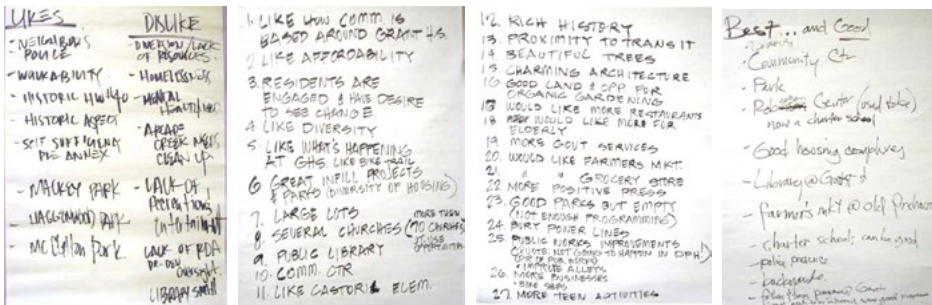 LIKES
- NEIGHBORS
POLICE
- WALKABILITY
- HISTORIC HWY 40
- HISTORIC ASPECT
- SELF SUFFICIENCY
PRE ANNEX
- MACKEY PARK
- HAGGINWOOD PARK
- Mc Clellan Park
DISLIKE
- DIVERSION/LACK
OF RESOURCES.
- HOMELESSNESS
- MENTAL
- ARCADE
CREEK NEEDS
CLEAN UP
- LACK OF
LACK OF RDA
LIBRARY small
1. LIKE HOW COMM. IS
BASED AROUND GRANT H.S.
2. LIKE AFFORDABILITY
3. RESIDENTS ARE
ENGAGED & HAVE DESIRE
TO SEE CHANGE
4. LIKE DIVERSITY
5. LIKE WHAT'S HAPPENING
AT GHS. LIKE BIKE TRAIL
6. GREAT INFILL PROJECTS
& PARKS (DIVERSITY OF HOUSING)
7. LARGE LOTS
8. SEVERAL CHURCHES (MORE THAN 70 CHURCHES
9. PUBLIC LIBRARY
10. COMM. CTR
11. LIKE CASTORI ELEM.
12. RICH HISTORY
13. PROXIMITY TO TRANSIT
14. BEAUTIFUL TREES
15. CHARMING ARCHITECTURE
16. GOOD LAND & OPP FOR
ORGANIC GARDENING
WOULD LIKE MORE RESTAURANTS
18 WOULD LIKE MORE FOR
ELDERLY
19. MORE GOVT SERVICES
20. WOULD LIKE FARMERS MKT.
21. " " GROCERY STORE
22. MORE POSITIVE PRESS
23. GOOD PARKS BUT EMPTY
(NOT ENOUGH PROGRAMMING)
24. BURY POWER LINES
25. PUBLIC WORKS IMPROVEMENTS
(QUOTE: NOT GOING TO HAPPEN IN DPH!)
• IMPROVE ALLEYS
26. MORE BUSINESSES
• BIKE SHOPS
27. MORE TEEN ACTIVITIES
Best... and Good
• Community Ctr
• Park
Center (used to be)
now a charter school
- Good housing complexes
- Library @ Grant
- farmer's mkt @ Old Firehouse
- charter school; can be good
- police presence